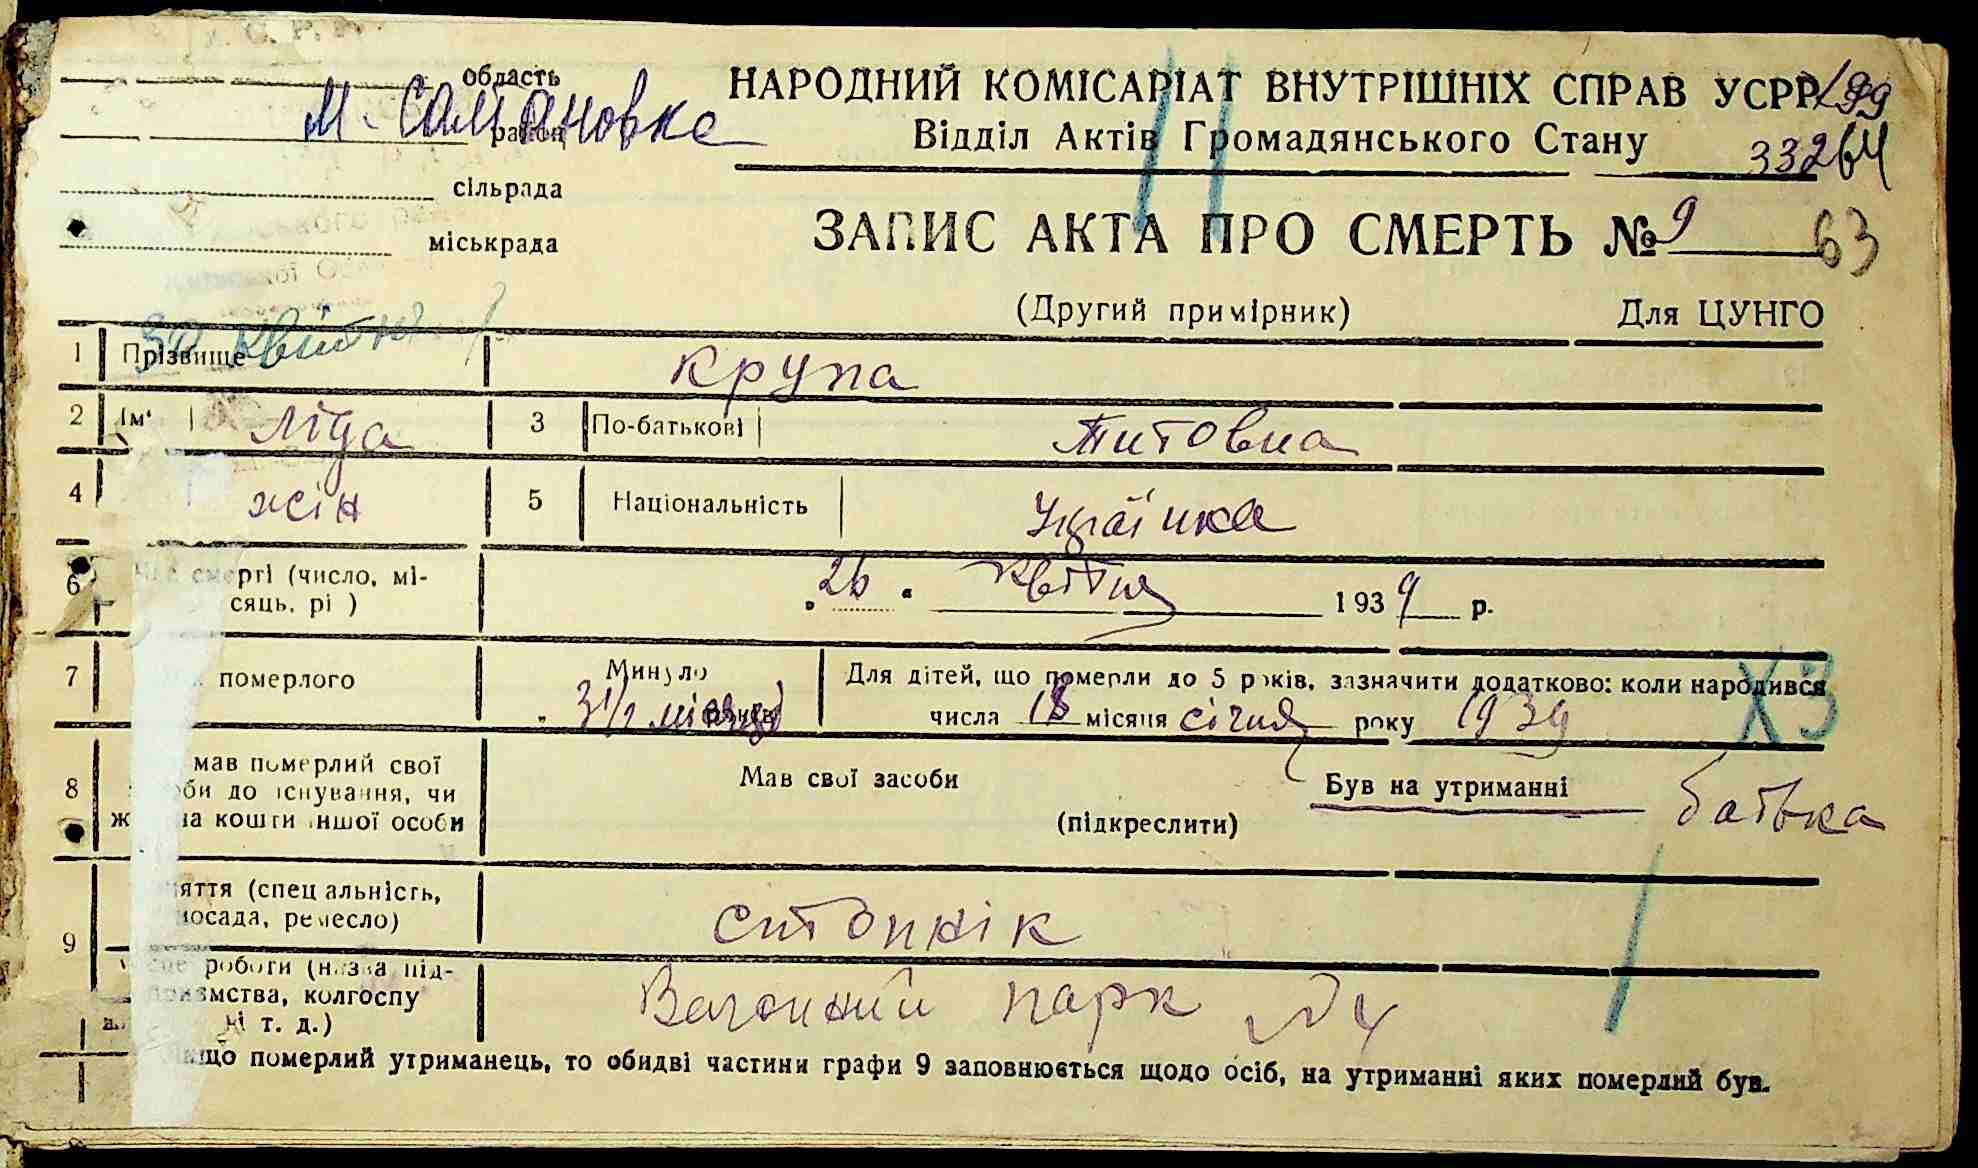 область
НАРОДНИЙ КОМІСАРІАТ ВНУТРІШНІХ СПРАВ УСРР
район
Відділ Актів Громадянського Стану
332 64
сільрада
ЗАПИС АКТА ПРО СМЕРТЬ № 9
63
міськрада
(Другий примірник) Для ЦУНГО
30 квітня
1 Прізвище Крупа
2 Ім' Ліда 3 По-батькові Титовна
4 жін 5 Національність Українка
6 смерті (число, мі-
сяць, рі )
„ 26 " Квітня 1939 р.
7 померлого
Минуло 3 1/2 місяців
Для дітей, що померли до 5 років, зазначити додатково: коли народився
числа 18 місяця січня року 1939
ХЗ
8 мав померлий свої
би до існування, чи
ж на кошти іншої особи
Мав свої засоби
(підкреслити)
Був на утриманні батька
9 яття (спеціальність,
посада, ремесло)
роботи (назва під-
ємства, колгоспу
і т. д.)
Вагонний парк
Якщо померлий утриманець, то обидві частини графи 9 заповнюється щодо осіб, на утриманні яких померлий був.